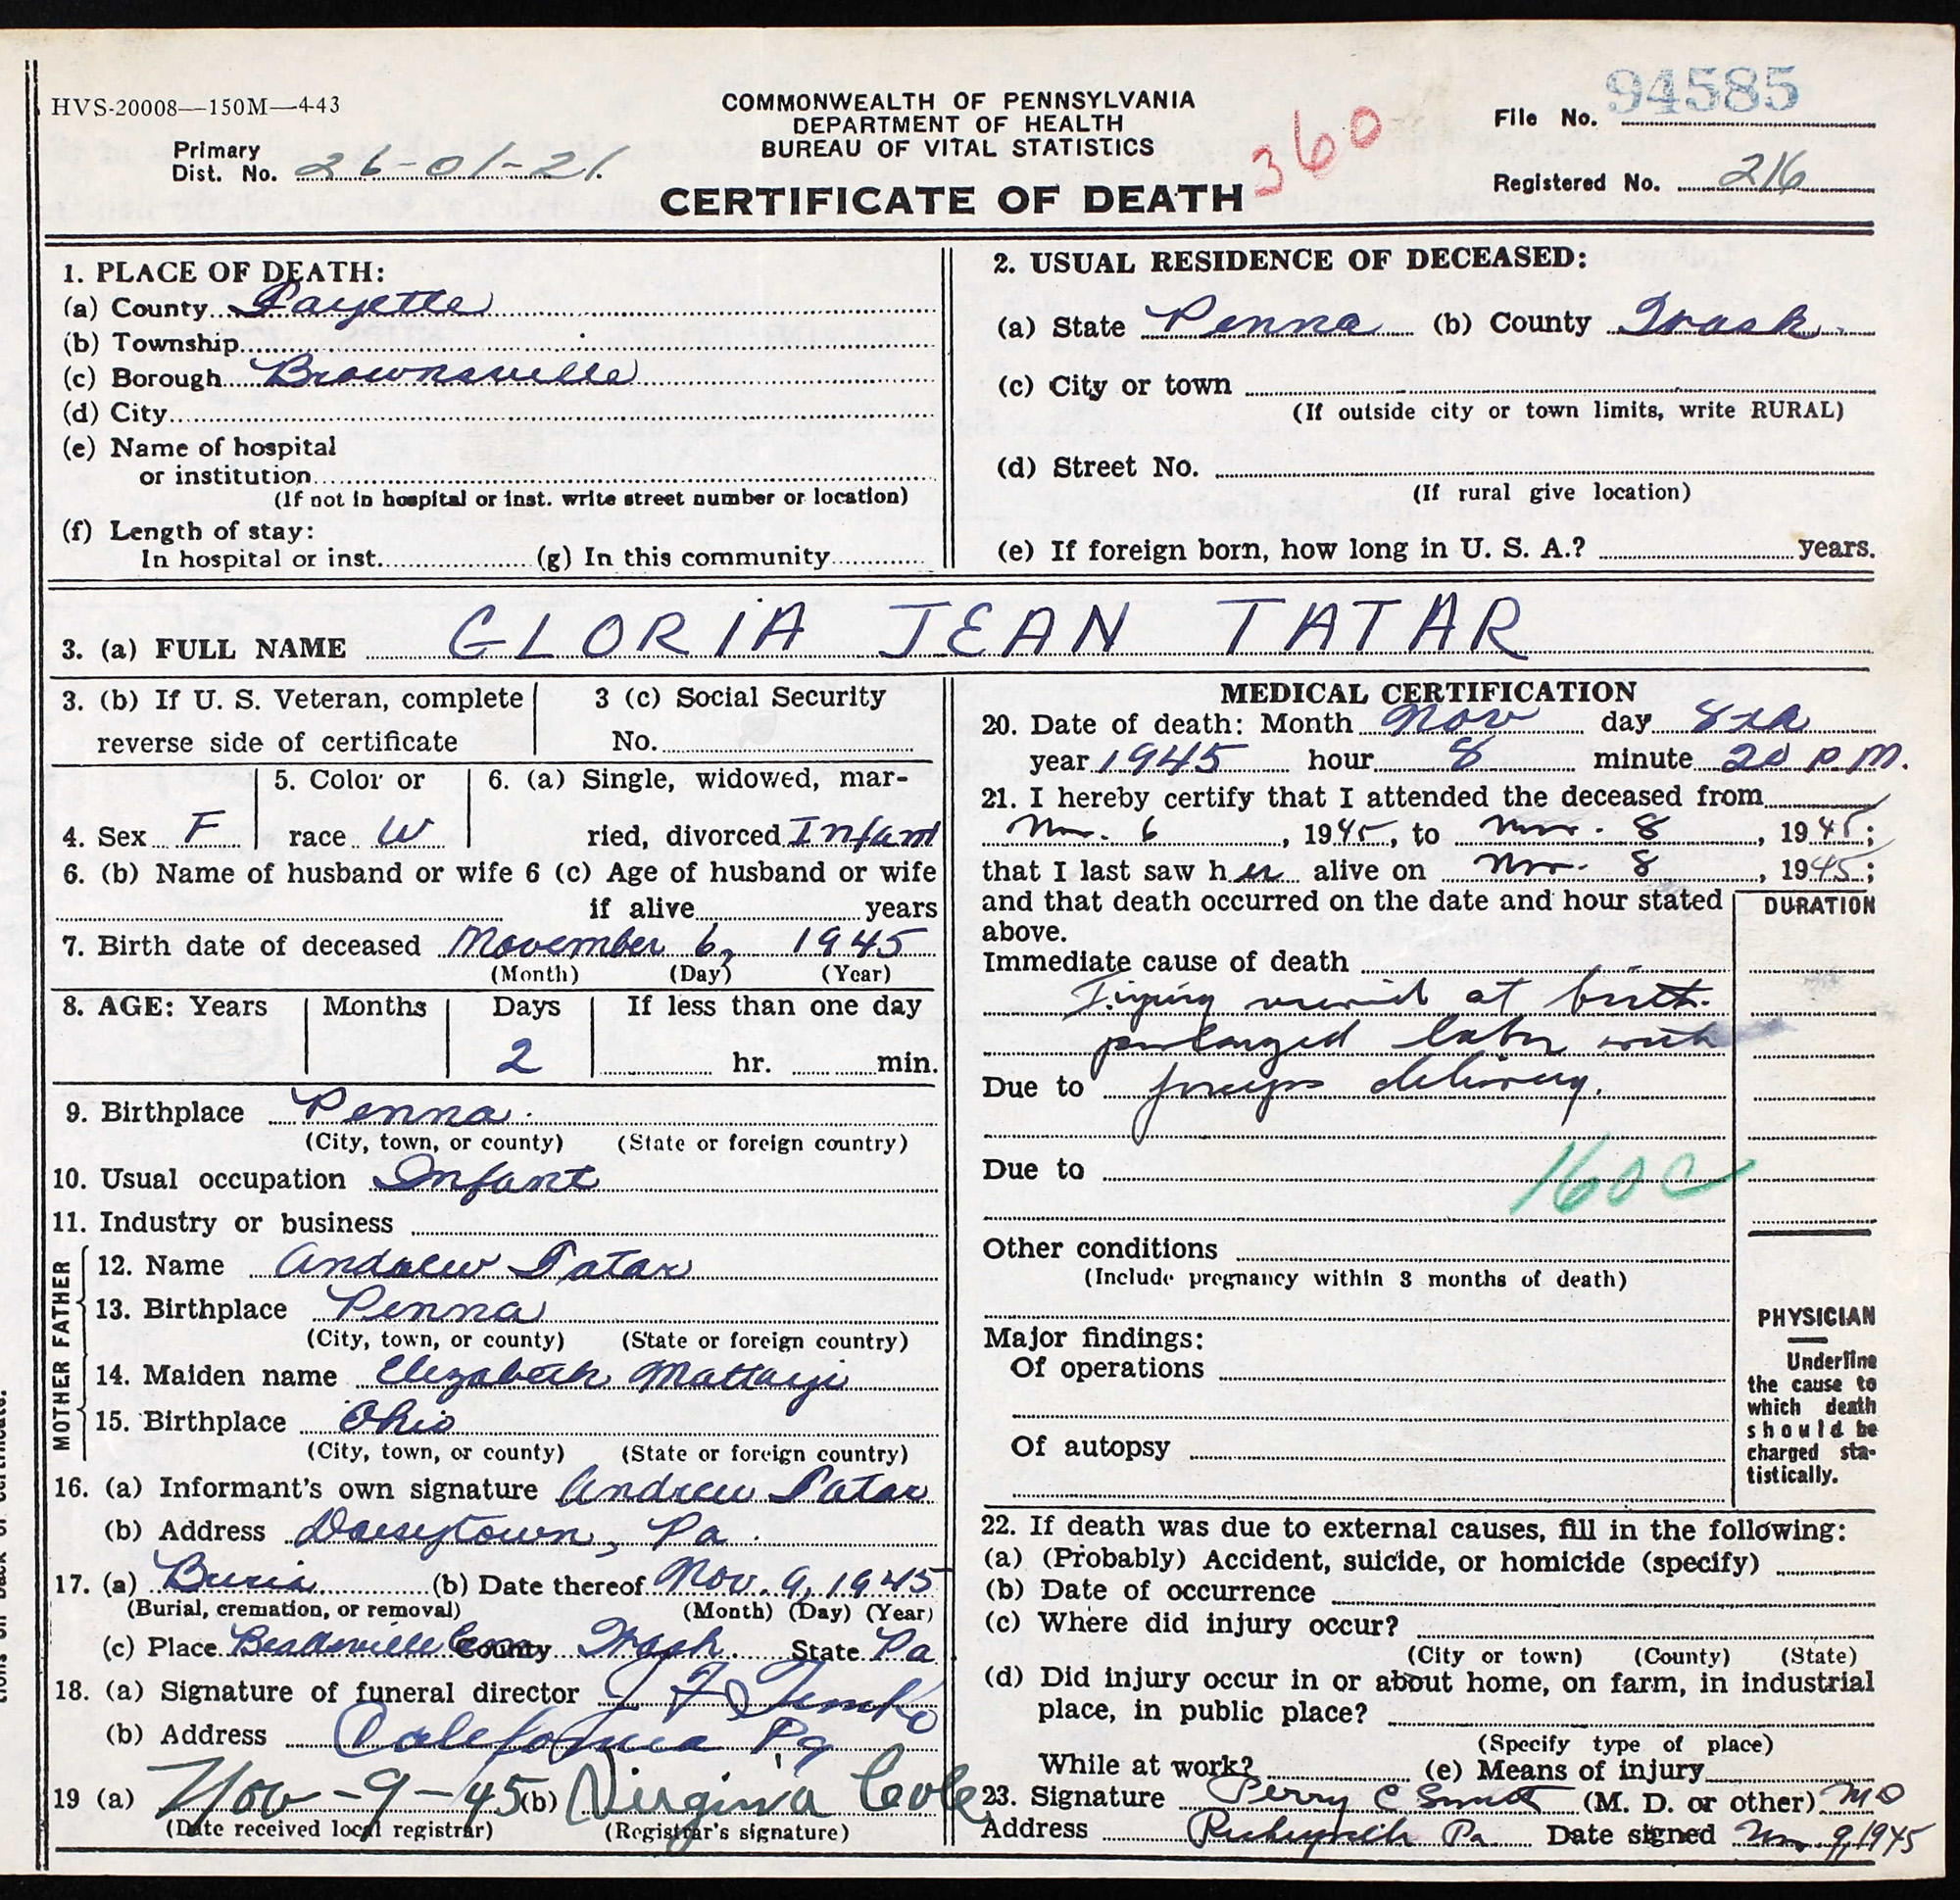 HVS-20008—150M—4-43
COMMONWEALTH OF PENNSYLVANIA
DEPARTMENT OF HEALTH
BUREAU OF VITAL STATISTICS
CERTIFICATE OF DEATH
360
File No. 94585
Primary
Dist. No. 26-01-21.
Registered No. 216
1. PLACE OF DEATH:
(a) County Fayette
(b) Township
(c) Borough Brownsville
(d) City
(e) Name of hospital
or institution
(If not in hospital or inst. write street number or location)
(f) Length of stay:
In hospital or inst. (g) In this community
2. USUAL RESIDENCE OF DECEASED:
(a) State Penna (b) County Wash.
(c) City or town
(If outside city or town limits, write RURAL)
(d) Street No.
(If rural give location)
(e) If foreign born, how long in U. S. A.? years.
3. (a) FULL NAME GLORIA JEAN TATAR
3. (b) If U. S. Veteran, complete
reverse side of certificate
3 (c) Social Security
No.
4. Sex F
5. Color or
race W
6. (a) Single, widowed, mar-
ried, divorced Infant
6. (b) Name of husband or wife 6 (c) Age of husband or wife
if alive years
7. Birth date of deceased November 6, 1945
(Month) (Day) (Year)
8. AGE: Years Months Days If less than one day
2 hr. min.
9. Birthplace Penna.
(City, town, or county) (State or foreign country)
10. Usual occupation Infant
11. Industry or business
FATHER
12. Name Andrew Tatar
13. Birthplace Penna
(City, town, or county) (State or foreign country)
MOTHER
14. Maiden name Elizabeth
15. Birthplace Ohio
(City, town, or county) (State or foreign country)
16. (a) Informant's own signature Andrew Tatar
(b) Address Daisytown, Pa.
17. (a) (b) Date thereof Nov. 9, 1945
(Burial, cremation, or removal) (Month) (Day) (Year)
(c) Place Beallsville Cem County Wash. State Pa
18. (a) Signature of funeral director J F
(b) Address California Pa
19 (a) Nov-9-45 (b) Virginia Cole
(Date received local registrar) (Registrar's signature)
MEDICAL CERTIFICATION
20. Date of death: Month Nov day
year 1945 hour 8 minute 20 P M.
21. I hereby certify that I attended the deceased from
Nov. 6, 1945, to Nov. 8, 1945;
that I last saw her alive on Nov. 8, 1945;
and that death occurred on the date and hour stated
above.
DURATION
Immediate cause of death
Injury at birth.
prolonged labor with
Due to forceps delivery.
Due to
160C
Other conditions
(Include pregnancy within 3 months of death)
Major findings:
Of operations
Of autopsy
PHYSICIAN
Underline
the cause to
which death
should be
charged sta-
tistically.
22. If death was due to external causes, fill in the following:
(a) (Probably) Accident, suicide, or homicide (specify)
(b) Date of occurrence
(c) Where did injury occur?
(City or town) (County) (State)
(d) Did injury occur in or about home, on farm, in industrial
place, in public place?
(Specify type of place)
While at work? (e) Means of injury
23. Signature Perry C Smith (M. D. or other) MD
Address Pa. Date signed Nov 9, 1945